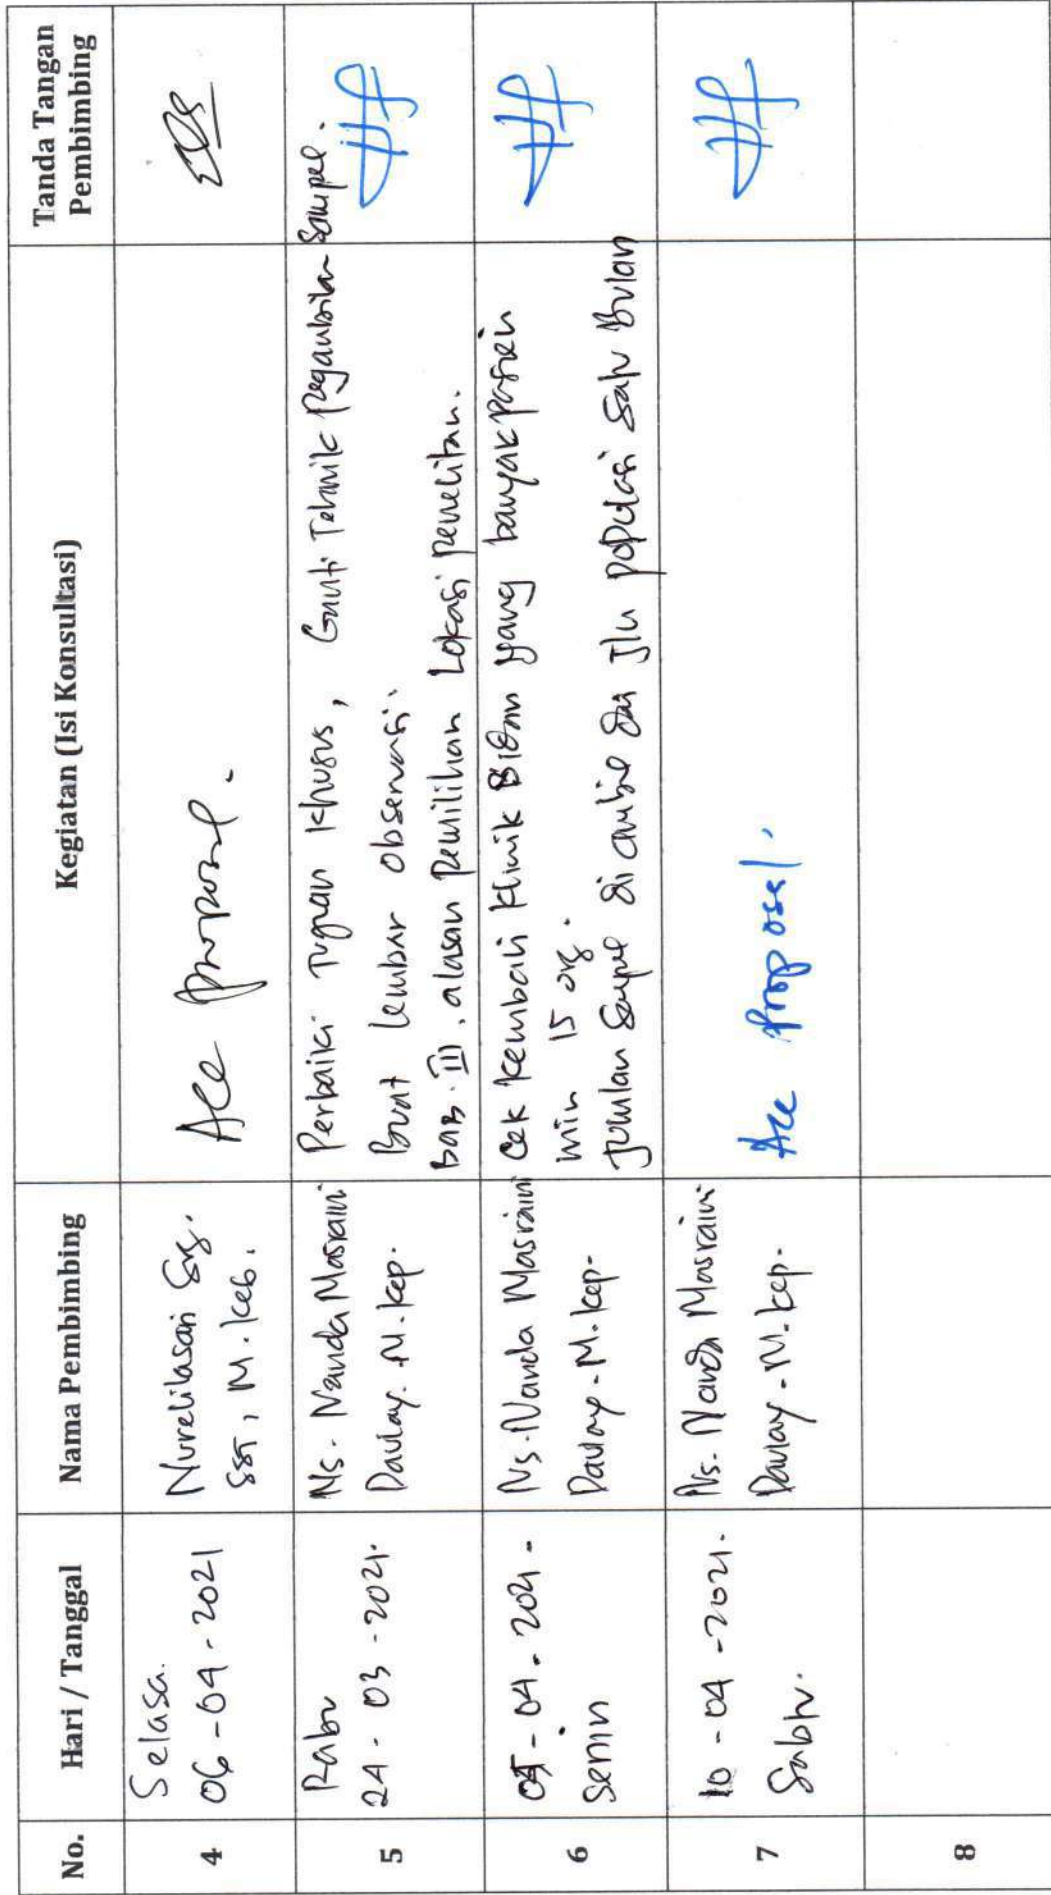 No.
Hari / Tanggal
Nama Pembimbing
Kegiatan (Isi Konsultasi)
Tanda Tangan
Pembimbing
4
Selasa.
06 - 04 - 2021
Nurelilasari Srg.
SST, M. Keb.
Acc proposal.
5
Rabu
24 - 03 - 2021.
Ns. Nanda Masraini
Daulay. M. Kep.
Perbaiki Tujuan Khusus, Ganti Tehnik Pegambilan Sampel.
Buat lembar observasi.
Bab. III. alasan Pemilihan Lokasi penelitian.
6
05 - 04 - 2021 -
Senin
Ns. Nanda Masraini
Daulay - M. Kep.
Cek kembali Klinik Bidan yang banyak pasien
min 15 org.
Jumlah Sampel di ambil dari Jlh populasi satu Bulan
7
10 - 04 - 2021.
Sabtu.
Ns. Nanda Masraini
Daulay - M. Kep.
Acc Proposal.
8